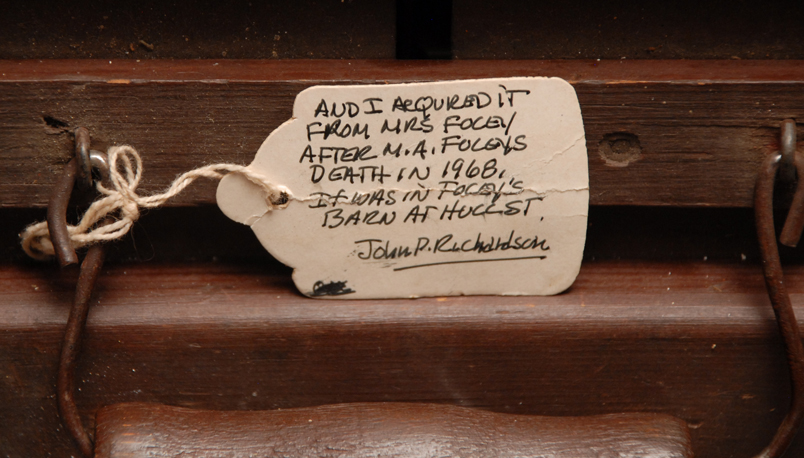 AND I ACQUIRED IT
FROM MRS FOLEY
AFTER M.A. FOLEYS
DEATH IN 1968.
IT WAS IN FOLEY'S
BARN AT HULL ST.
John P. Richardson